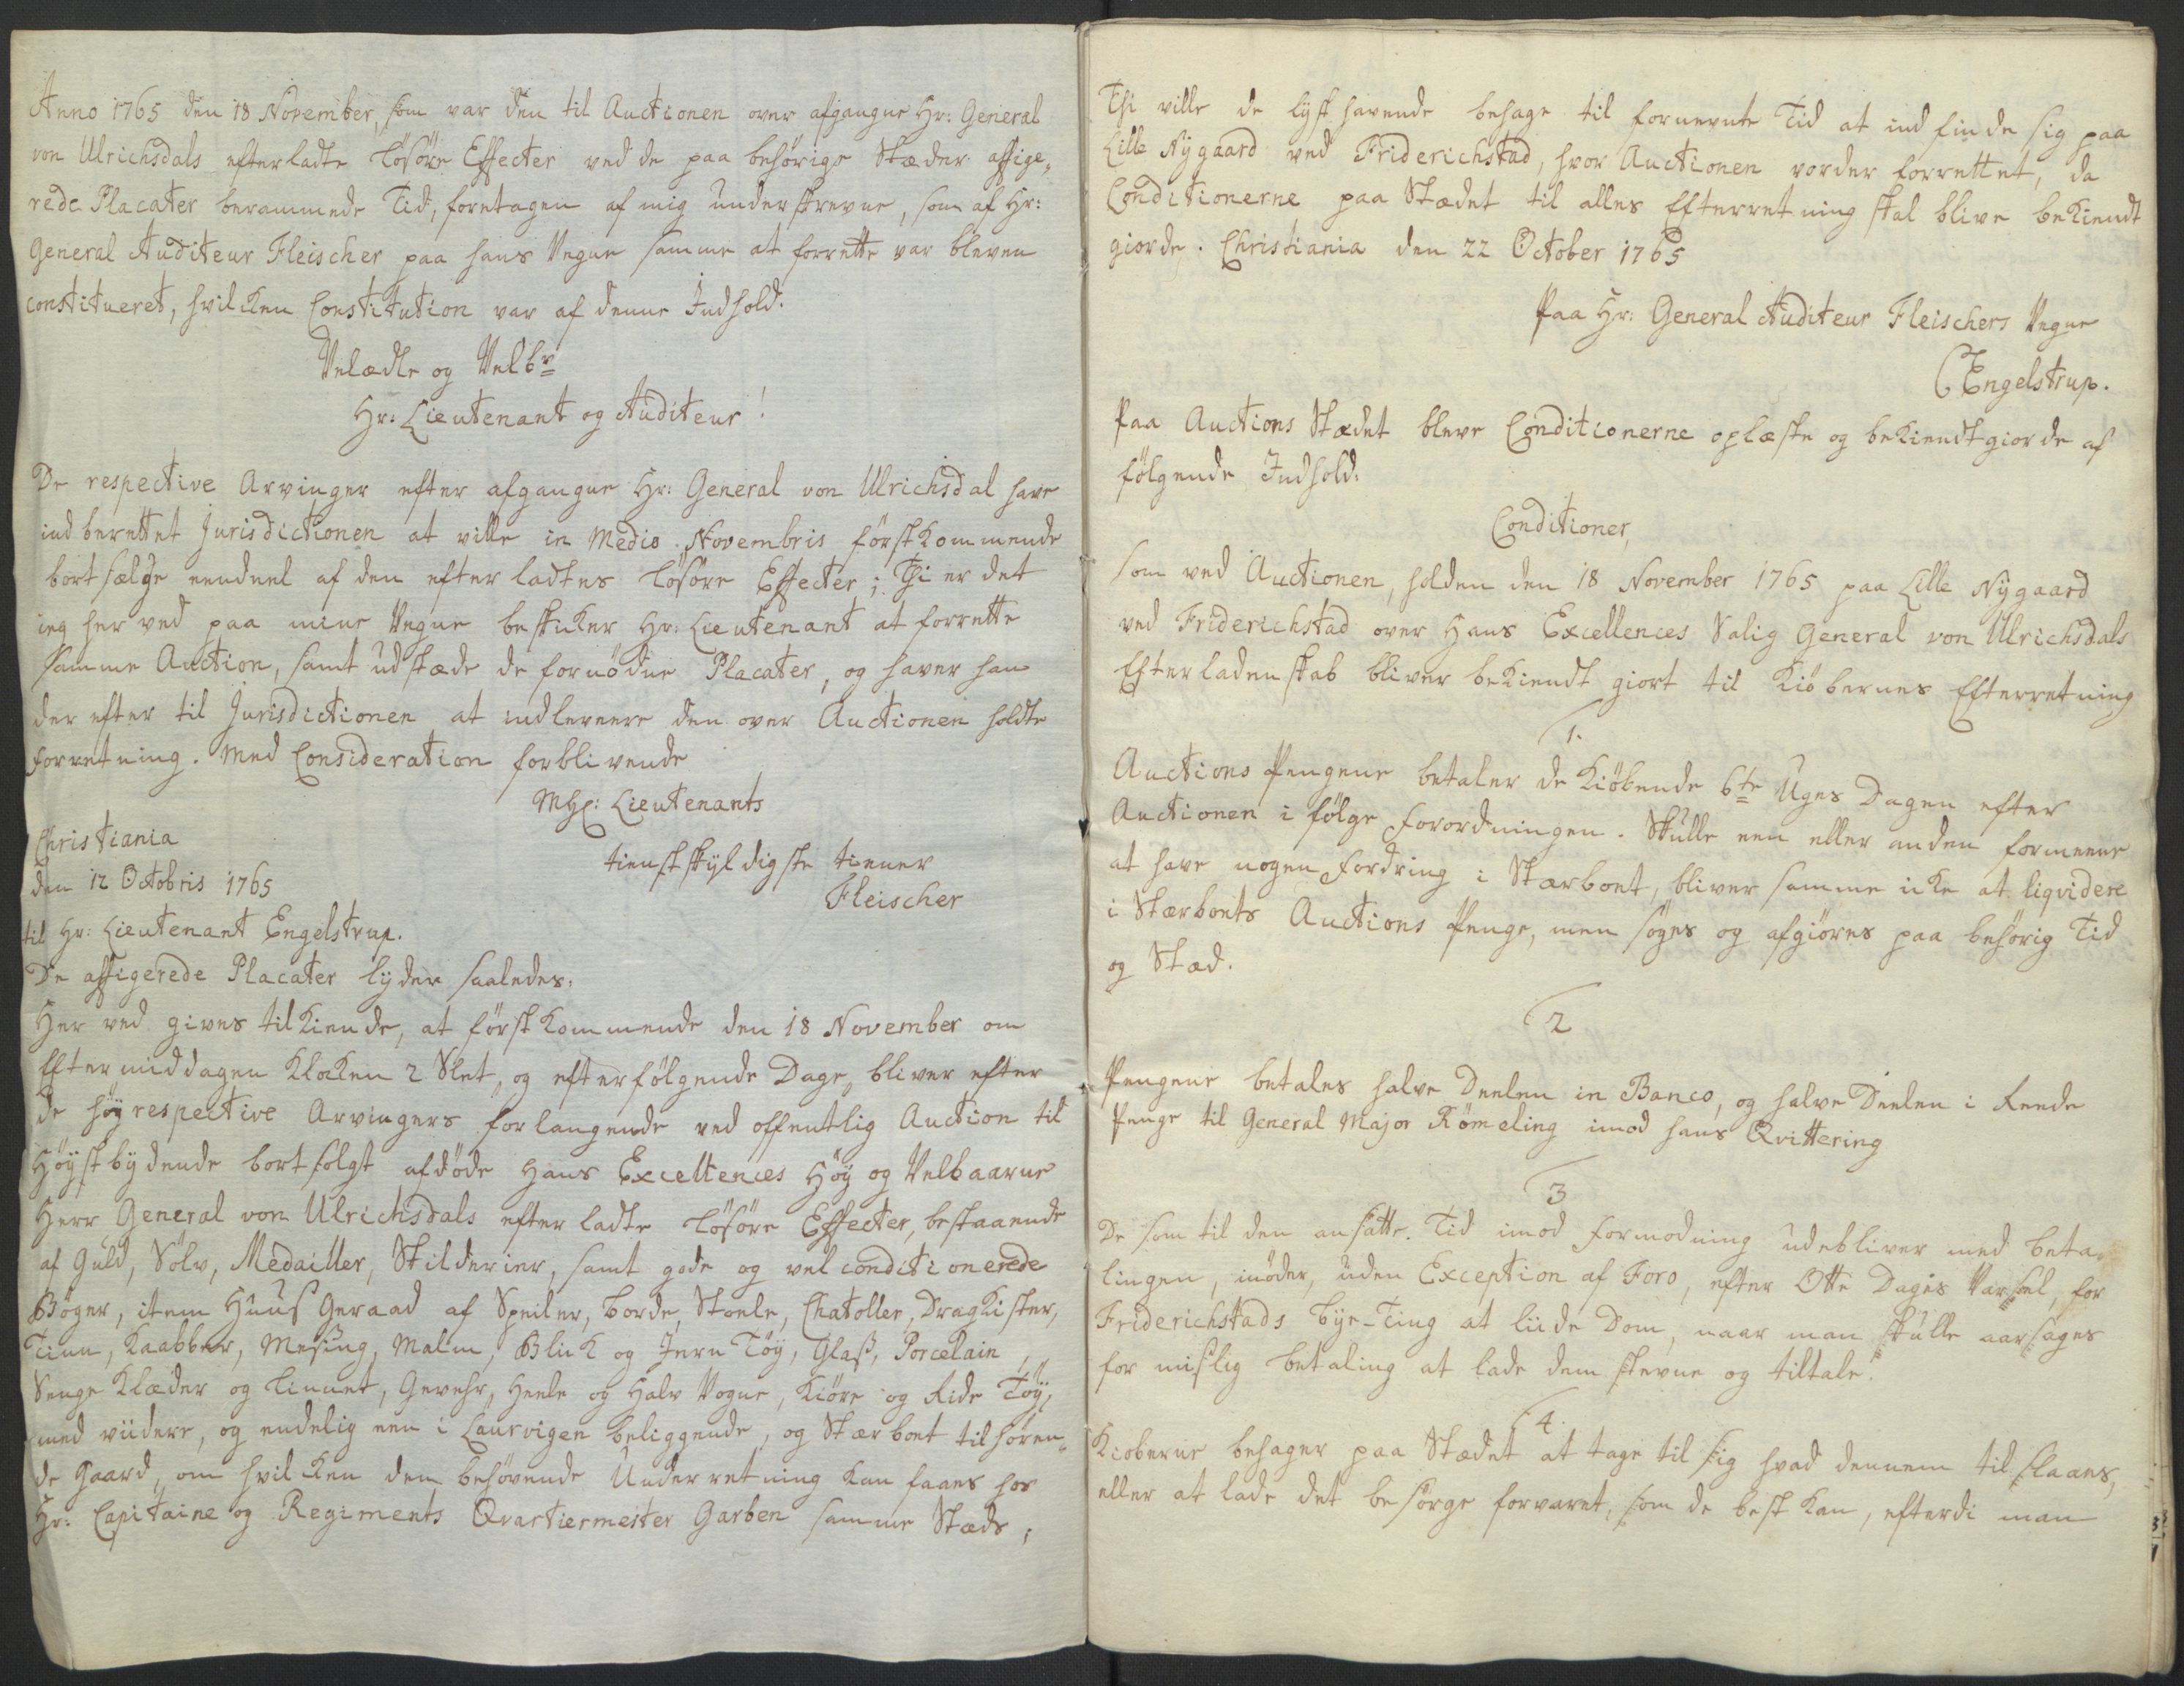 Anno 1765 den 18 November, som var den til Auctionen over afgangne Hr: General
von Ulrichsdals efterladte Løsøre Effecter ved de paa behørige Stæder affige-
rede Placater berammede Tid, foretagen af mig underskrevne, som af Hr:
General Auditeur Fleischer paa hans Vegne samme at forrette var bleven
constitueret, hvilcken Constitution var af denne Indhold.
Velædle og Velbr
Hr: Lieutenant og Auditeur!
De respective Arvinger efter afgangne Hr: General von Ulrichsdal have
indberettet Jurisdictionen at ville in Medio Novembris førstkommende
bortsælge eendeel af den efterladtes Løsøre Effecter; Thi er det
ieg her ved paa mine Vegne beskicker Hr: Lieutenant at forrette
samme Auction, samt udstæde de fornødne Placater, og haver han
der efter til Jurisdictionen at indlevere den over Auctionen holdte
forretning. Med Consideration forblivende
MHH: Lieutenants
Christiania
tienstskyldigste tiener
den 12 Octobris 1765
Fleischer
til Hr: Lieutenant Engelstrup.
De affigerede Placater lyder saaledes:
Her ved gives tilkiende, at førstkommende den 18 November om
Eftermiddagen Klocken 2 Slet, og efterfølgende Dage, bliver efter
de høyrespective Arvingers forlangende ved offentlig Auction til
Høystbydende bortsolgt afdøde Hans Excellences Høy og Velbaarne
Herr General von Ulrichsdals efterladte Løsøre Effecter, bestaaende
af Guld, Sølv, Medailler, Skilderier, samt gode og vel conditionerede
Bøger, item Huus Geraad af Speiler, borde, Stoele, Chatoller, Dragkister,
Tinn, Kaabber, Messing, Malm, Blick og Jern Tøy, Glass, Porcelain,
Senge Klæder og Linnet, Gevehr, Heele og Halv Vogne, Kiøre og Ride Tøy,
med viidere, og endelig een i Laurvigen beliggende, og Stærboet tilhøren-
de Gaard, om hvilcken den behøvende Underretning kan faaes hos
Hr: Capitaine og Regiments Qvartiermester Garben samme Stæds;
Thi ville de lysthavende behage til fornevnte Tid at indfinde sig paa
Lille Nygaard ved Friderichstad, hvor Auctionen vorder forrettet, da
Conditionerne paa Stædet til alles Efterretning skal blive bekiendt
giorde. Christiania den 22 October 1765
Paa Hr: General Auditeur Fleischers Vegne
C Engelstrup.
Paa Auctions Stædet bleve Conditionerne oplæste og bekiendtgiorde af
følgende Indhold:
Conditioner,
som ved Auctionen, holden den 18 November 1765 paa Lille Nygaard
ved Friderichstad over Hans Excellences Salig General von Ulrichsdals
Efterladenskab bliver bekiendt giort til Kiøbernes Efterretning
1.
Auctions Pengene betaler de Kiøbende 6te Uges Dagen efter
Auctionen i følge Forordningen. Skulle een eller anden formeene
at have nogen Fordring i Stærboet, bliver samme icke at liqvidere
i Stærboets Auctions Penge, men søges og afgiøres paa behørig Tid
og Stæd.
2
Pengene betales halve Deelen in Banco, og halve Deelen i Reede
Penge til General Major Rømeling imod hans Qvittering
3
De som til den ansatte Tid imod Formodning udebliver med beta-
lingen, møder, uden Exception af Foro, efter Otte Dages Varsel, for
Friderichstads bye-Ting at liide Dom, naar man skulle aarsages
for mislig betaling at lade dem stevne og tiltale.
4.
Kioberne behager paa Stædet at tage til sig hvad dennem tilslaaes,
eller at lade det besørge forvaret, som de best kan, efterdi man